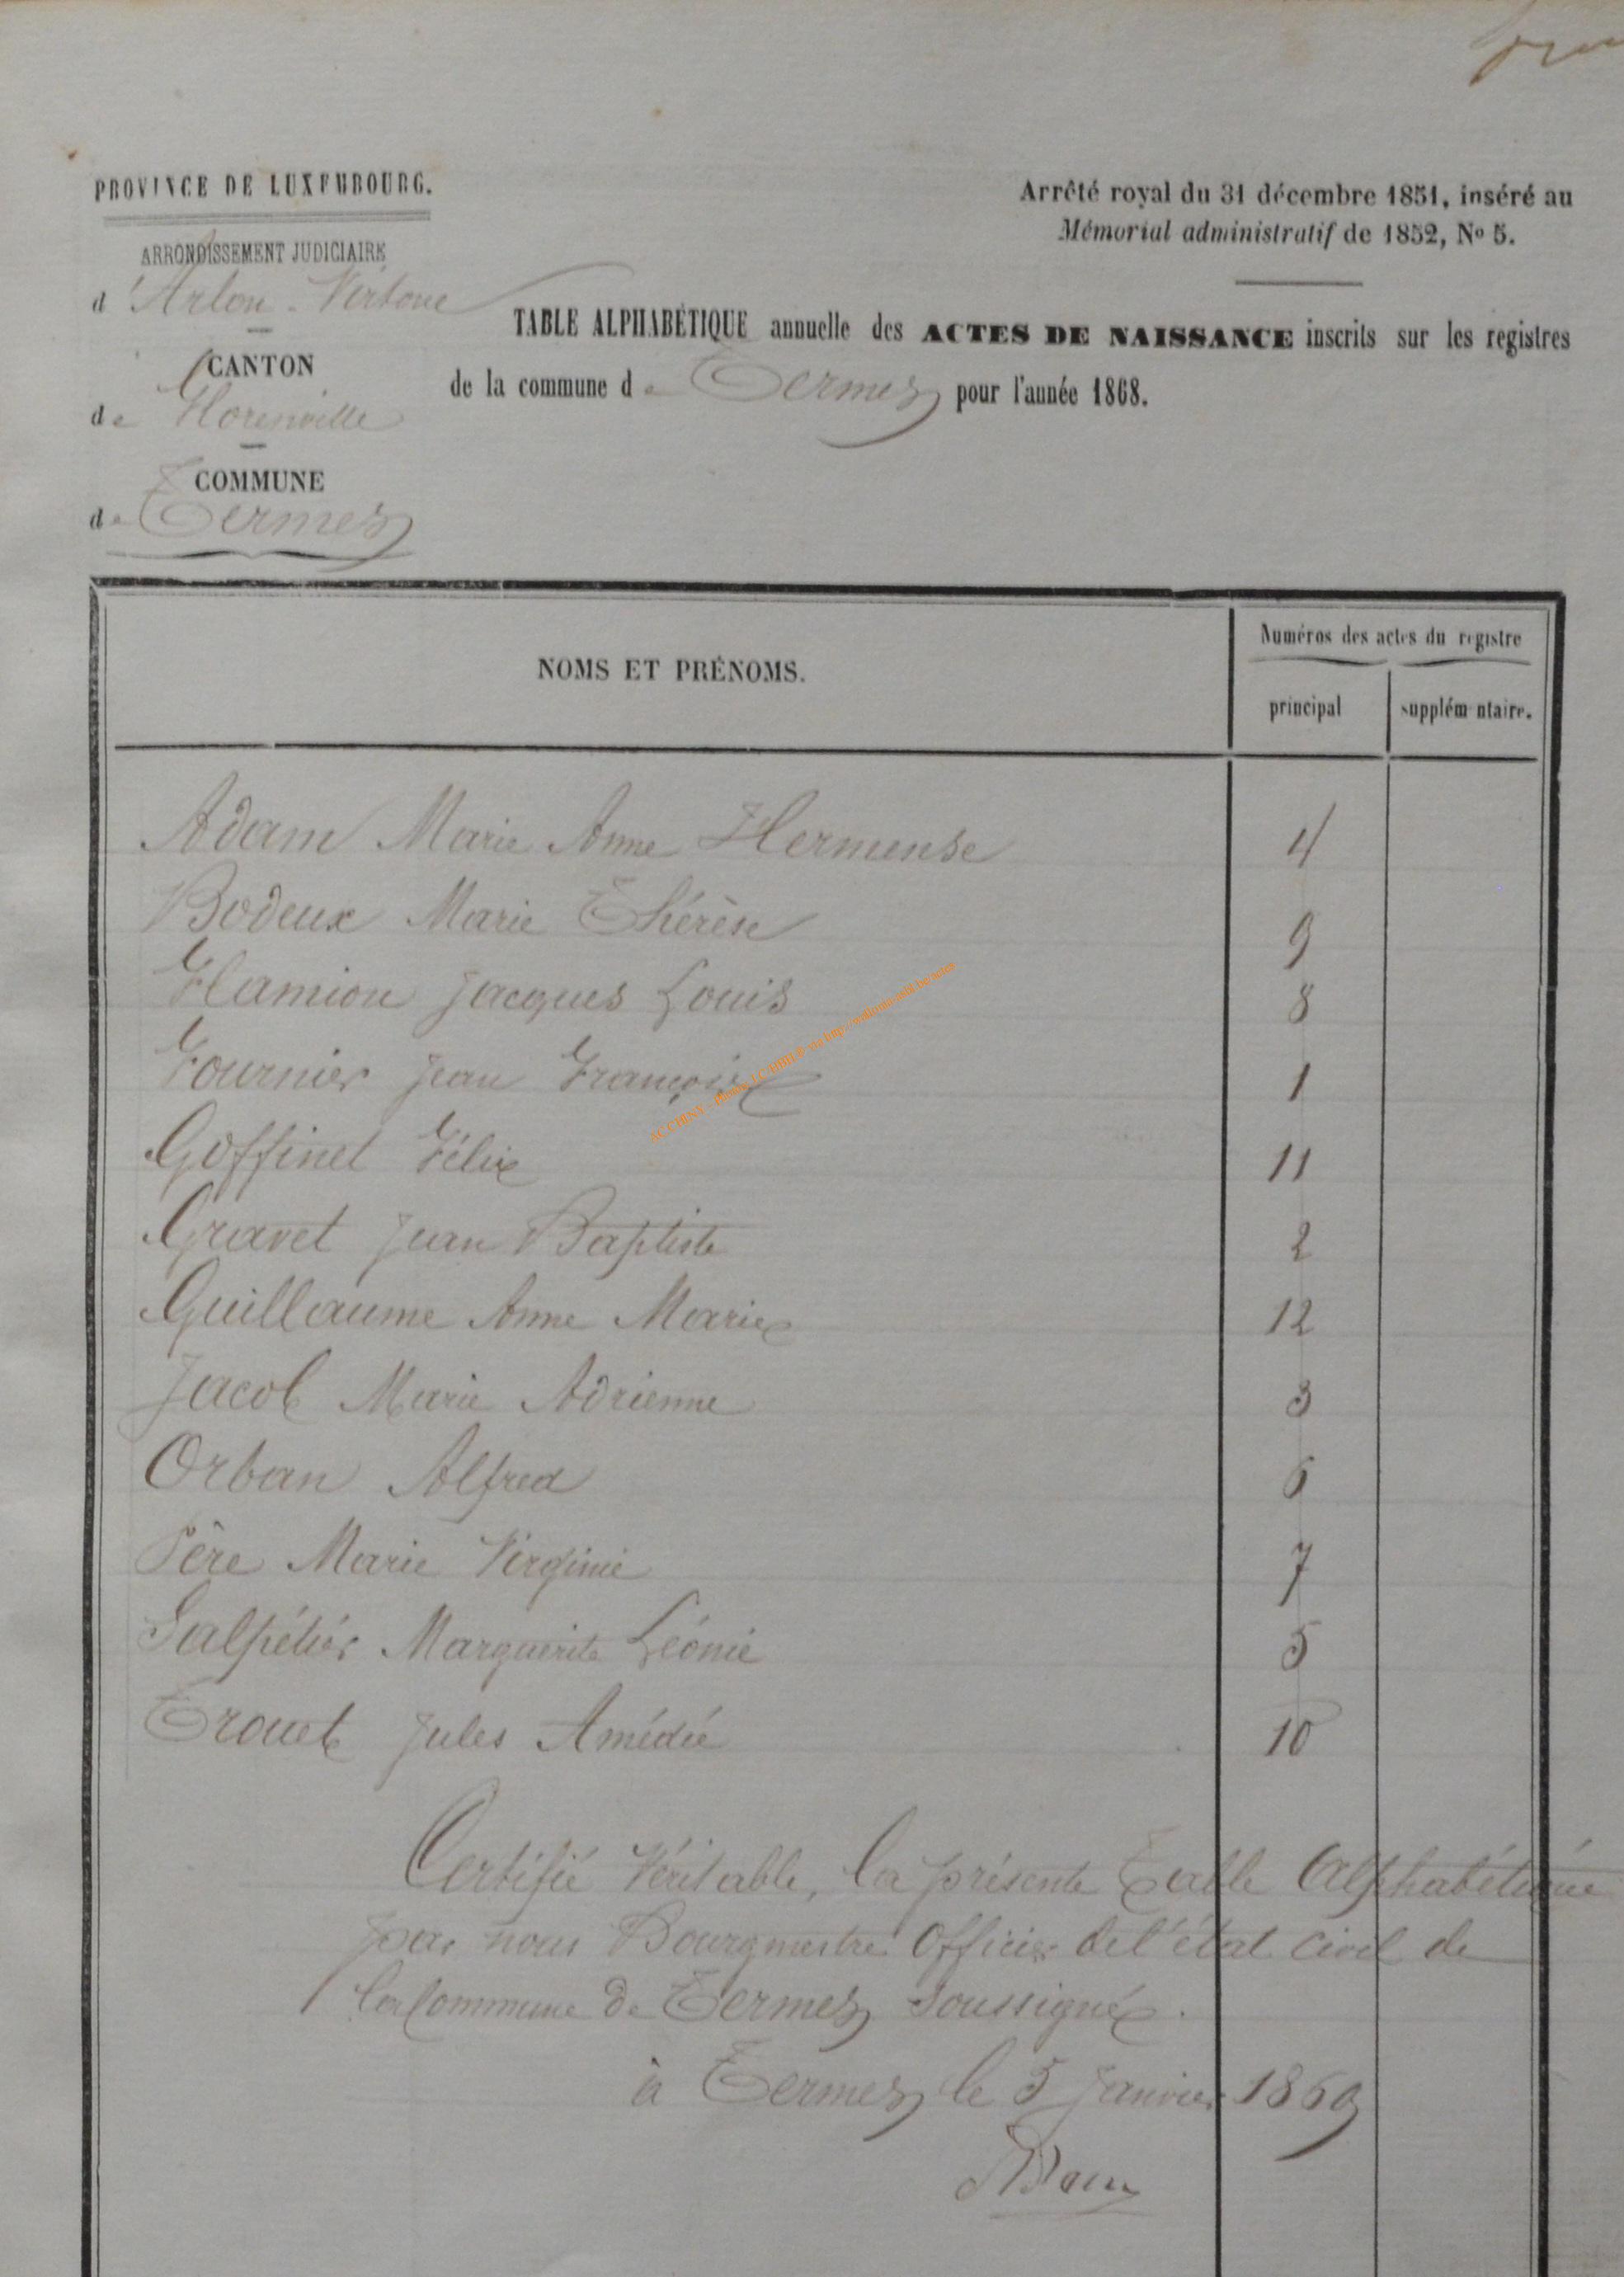 PROVINCE DE LUXEMBOURG.
ARRONDISSEMENT JUDICIAIRE
d'Arlon-Virton
CANTON
de Florenville
COMMUNE
de Termes
Arrêté royal du 31 décembre 1851, inséré au
Mémorial administratif de 1852, No 5.
TABLE ALPHABÉTIQUE annuelle des ACTES DE NAISSANCE inscrits sur les registres
de la commune de Termes pour l'année 1868.
NOMS ET PRÉNOMS.
Numéros des actes du registre
principal
supplémentaire.
Adam Marie Anne Hermense 4
Bodeux Marie Thérèse 9
Flamion Jacques Louis 8
Fournier Jean François 1
Goffinet Félix 11
Gravet Jean Baptiste 2
Guillaume Anne Marie 12
Jacob Marie Adrienne 3
Orban Alfred 6
Père Marie Virginie 7
Salpétiér Marguerite Léonie 5
Trouet Jules Amédée 10
Certifié Véritable, la présente Table Alphabétique
par nous Bourgmestre Officier de l'état Civil de
la Commune de Termes soussigné.
à Termes le 5 Janvier 1869
Adam